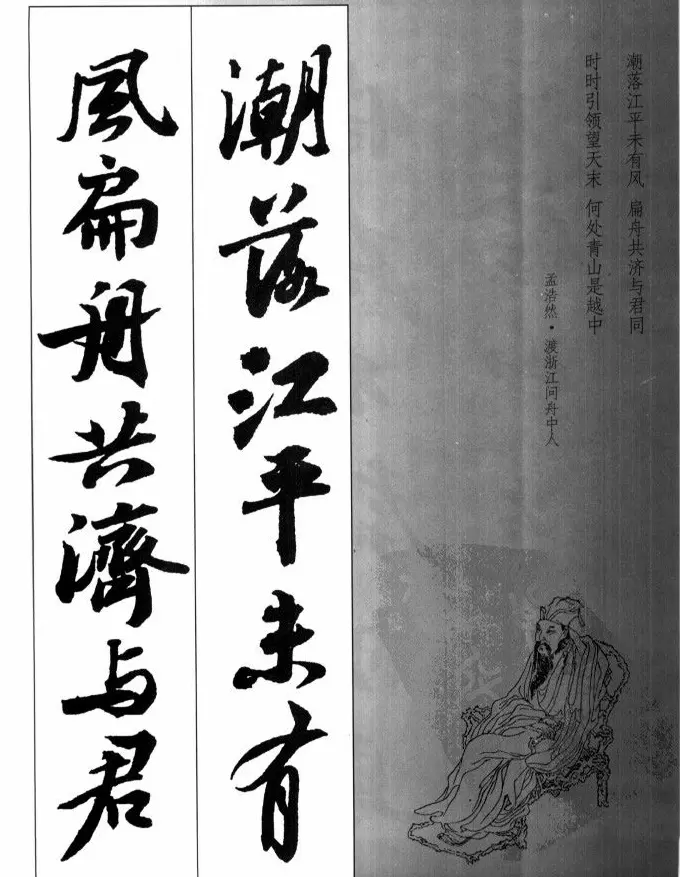 潮落江平未有风 扁舟共济与君同
时时引领望天末 何处青山是越中
孟浩然·渡浙江问舟中人
潮落江平未有
風扁舟共濟与君